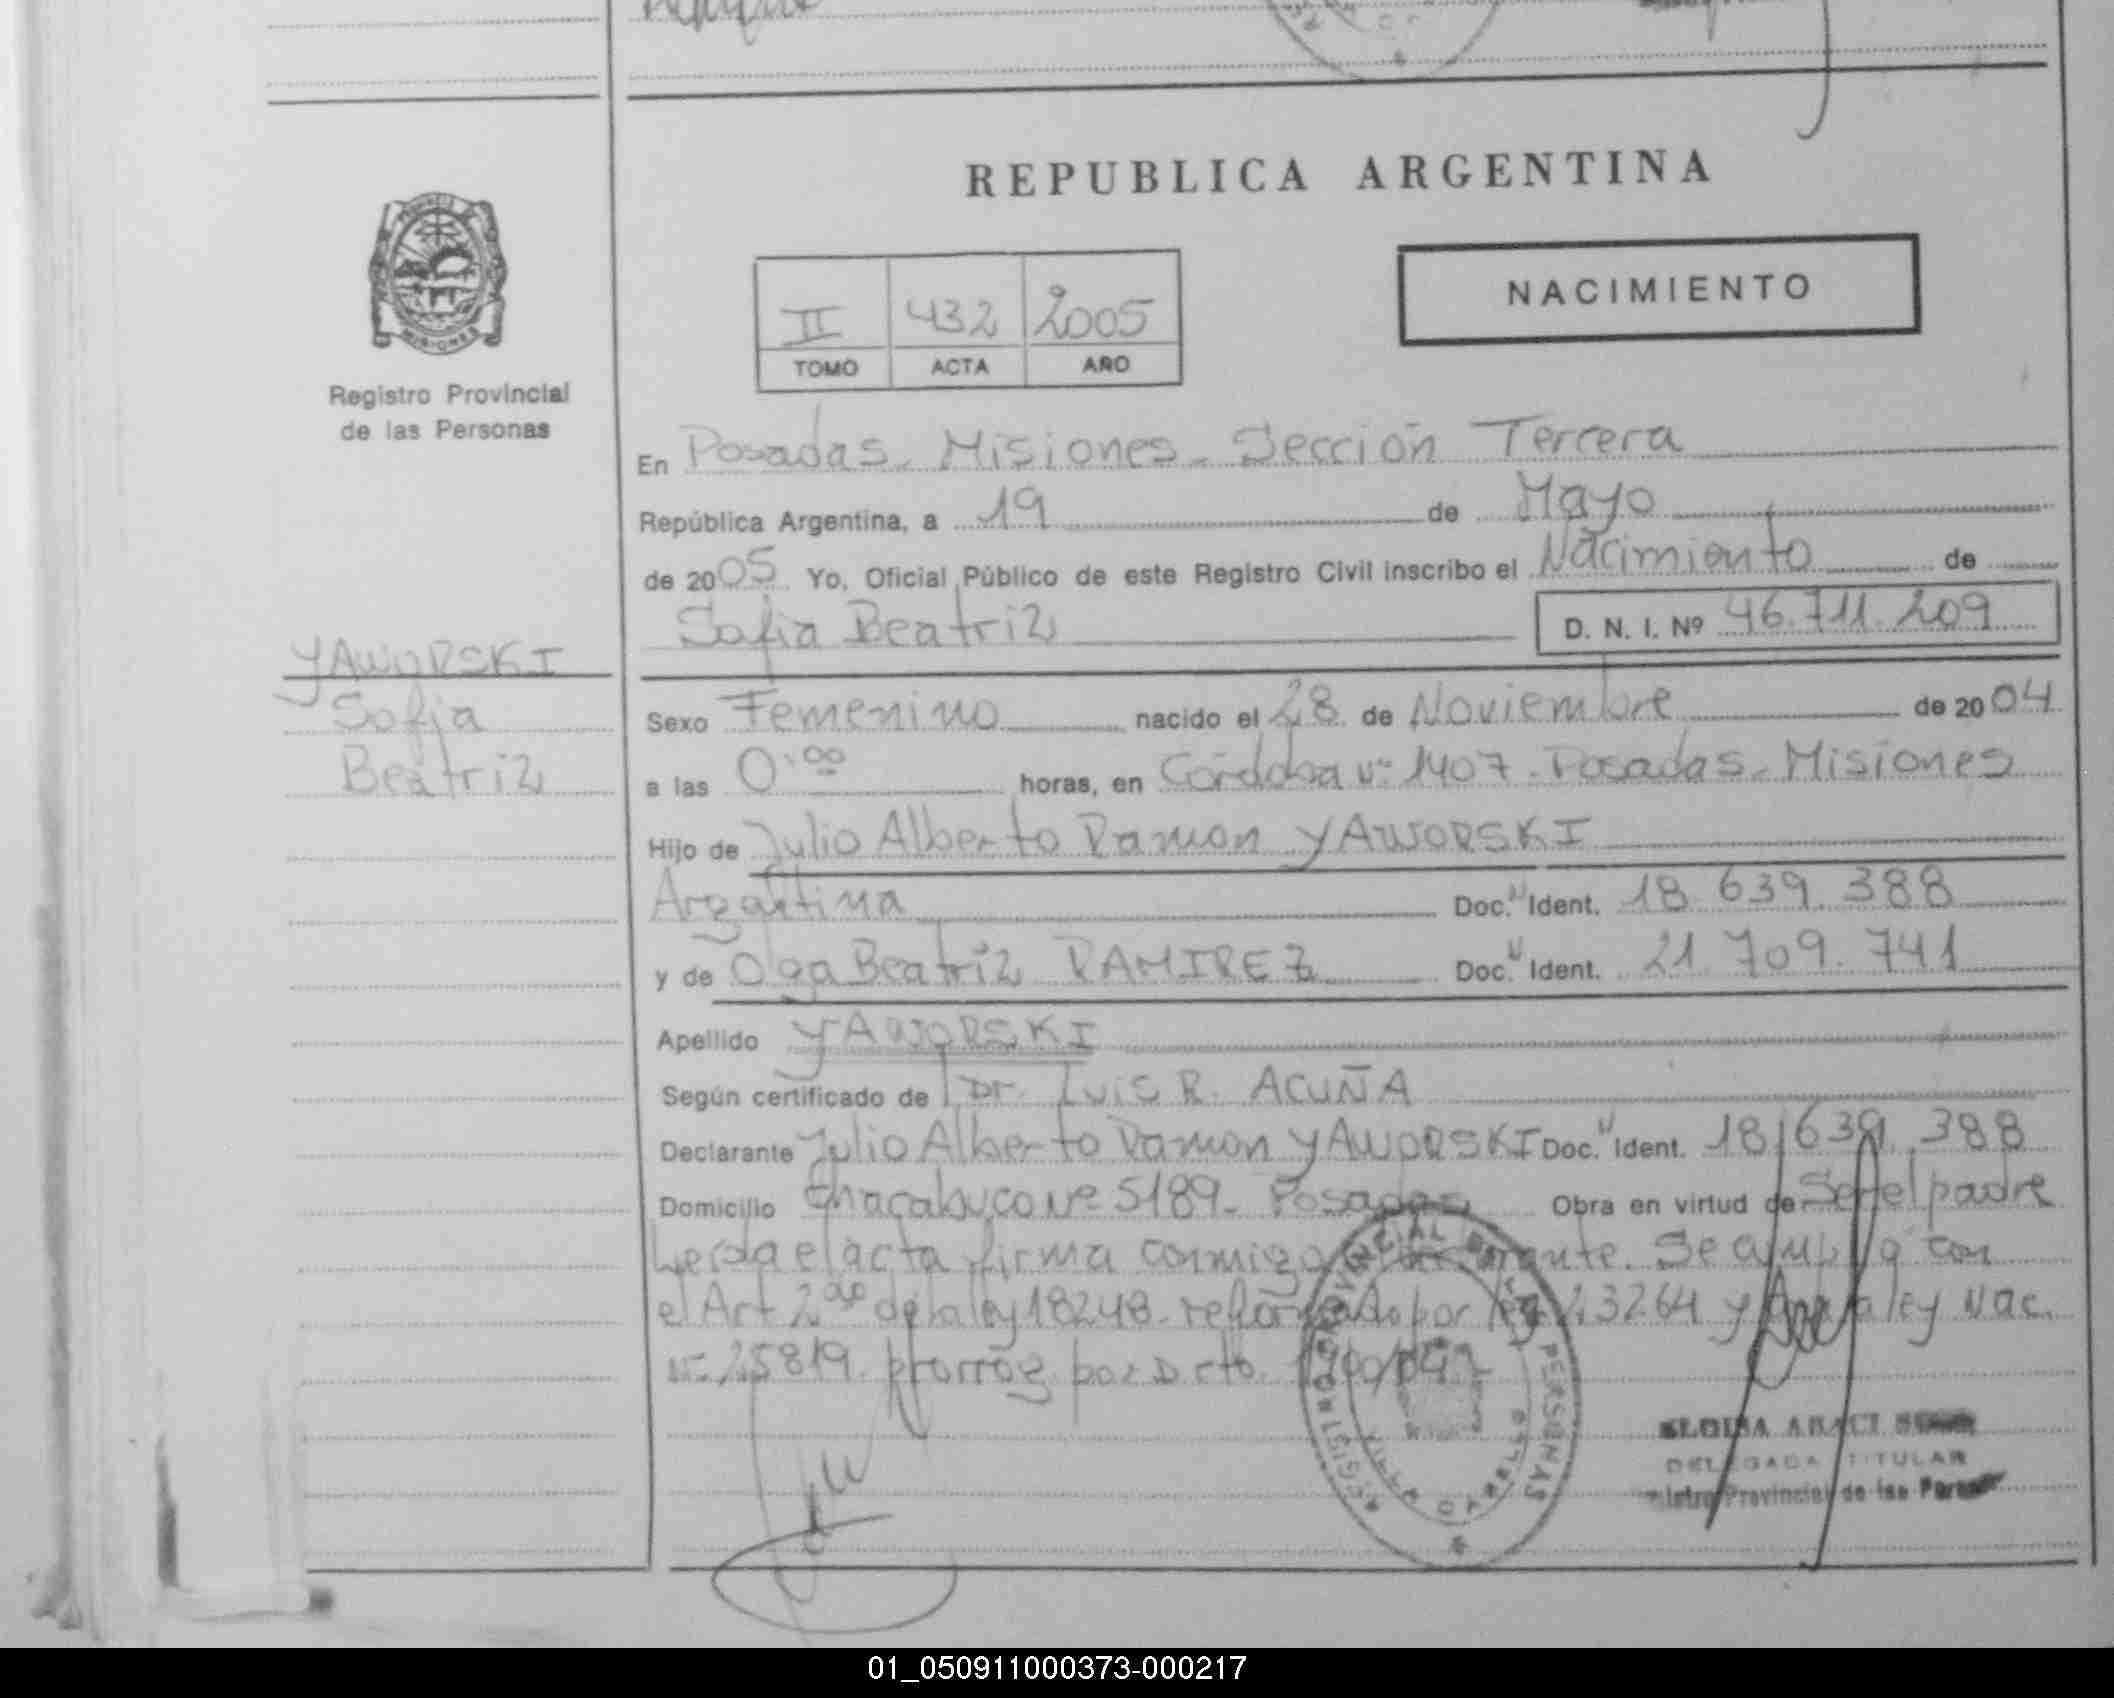 REPUBLICA ARGENTINA
MISIONES
Registro Provincial
de las Personas
II 432 2005
TOMO ACTA AÑO
NACIMIENTO
En Posadas - Misiones - Sección Tercera
República Argentina, a 19 de Mayo
de 2005 Yo, Oficial Público de este Registro Civil inscribo el Nacimiento de
Sofia Beatriz D. N. I. Nº 46.711.209
YAWORSKI
Sofia
Beatriz
Sexo Femenino nacido el 28 de Noviembre de 2004
a las 0:00 horas, en Córdoba nº 1407 - Posadas - Misiones
Hijo de Julio Alberto Ramon YAWORSKI
Argentina Doc. N Ident. 18.639.388
y de Olga Beatriz RAMIREZ Doc. N Ident. 21.709.741
Apellido YAWORSKI
Según certificado de Dr. Luis R. ACUÑA
Declarante Julio Alberto Ramon YAWORSKI Doc. N Ident. 18.639.388
Domicilio Chacabuco Nº 5189 - Posadas Obra en virtud de Ser el padre
Leida el acta firma conmigo Se con
el Art 2do de la ley 18248 - reformado por ley 23264 y ley Nac.
Nº 25819. prorrog por Dcto.
REGISTRO PROVINCIAL DE LAS PERSONAS
VILLA OTELLO
DELEGADA TITULAR
Provincial de las
01_050911000373-000217